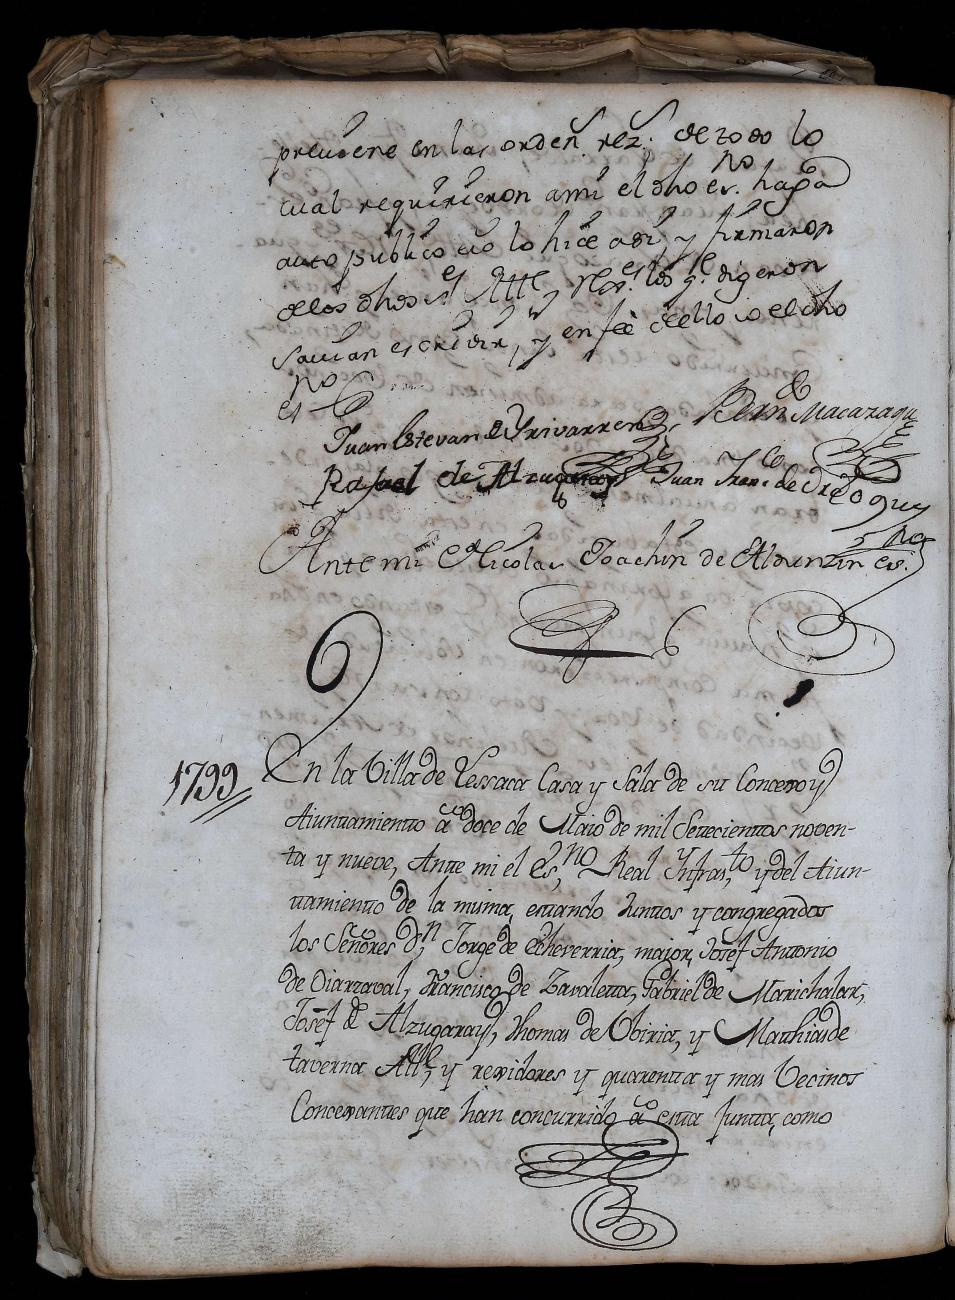 preuiene en las orden̄s rez.s de todo lo
cual requirieron ami el dho es.no haga
auto publico yo lo hice asi, y firmaron
de los dhos s.es Alltte y Res.es los q.e digeron
sauian escriuir, y en feè de ello yo el dho
es.no
Juan Estevan de Yrivarren Bern.do Macazaga
Rafael de Alzugaray Juan Fran.co de Yndaquy
Ante mi Nicolas Joachin de Aldunzin es.no
1799 En la Villa de Lessaca Casa y Sala de su Concexo y
Aiuntamiento à doce de Maio de mil Setecientos noven-
ta y nueve, Ante mi el Es.no Real Ynfras.to y del Aiun-
tamiento de la misma, estando Juntos y congregados
los Señores d.n Jorge de Echeverria, maior, Josef Antonio
de Oiarzaval, Francisco de Zavaleta, Gabriel de Marichalar,
Josef de Alzugaray, Thomas de Obiria, y Mathias de
taverna Alltte, y rexidores y quarenta y mas Vecinos
Concexantes que han concurrido à esta Junta, como